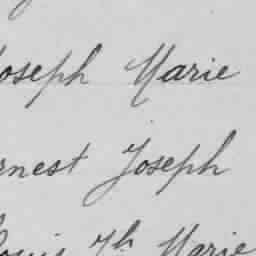 Joseph Marie
Ernest Joseph
Louis Th Marie